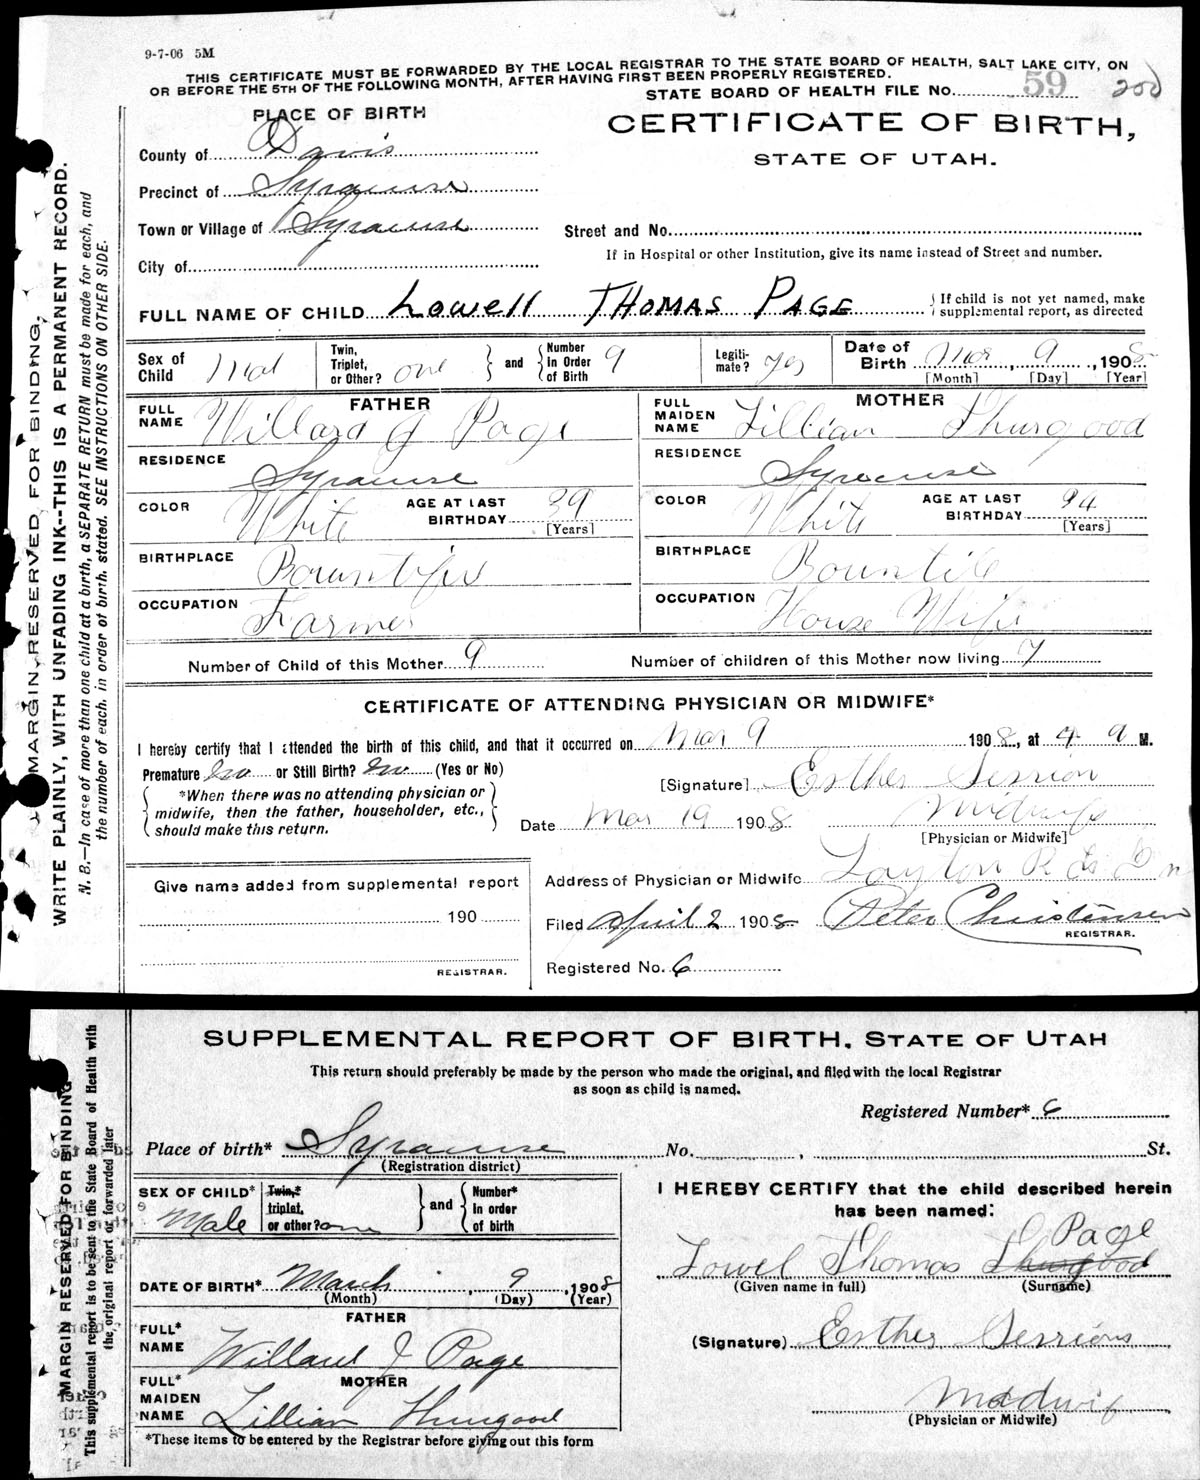 9-7-06 5M
THIS CERTIFICATE MUST BE FORWARDED BY THE LOCAL REGISTRAR TO THE STATE BOARD OF HEALTH, SALT LAKE CITY, ON
OR BEFORE THE 5TH OF THE FOLLOWING MONTH, AFTER HAVING FIRST BEEN PROPERLY REGISTERED.
STATE BOARD OF HEALTH FILE No. 59 200
PLACE OF BIRTH
CERTIFICATE OF BIRTH,
STATE OF UTAH.
County of Davis
Precinct of Syracuse
Town or Village of Syracuse
Street and No.
If in Hospital or other Institution, give its name instead of Street and number.
City of
FULL NAME OF CHILD Lowell THOMAS PAGE
If child is not yet named, make
supplemental report, as directed
Sex of Child Mal
Twin, Triplet, or Other? one and Number in Order of Birth 9
Legitimate? yes
Date of Birth Mar 9, 1908
[Month] [Day] [Year]
FATHER
FULL NAME Willard J Page
MOTHER
FULL MAIDEN NAME Lillian Thurgood
RESIDENCE Syracuse
RESIDENCE Syracuse
COLOR White AGE AT LAST BIRTHDAY 39 [Years]
COLOR White AGE AT LAST BIRTHDAY 34 [Years]
BIRTHPLACE Bountiful
BIRTHPLACE Bountile
OCCUPATION Farmer
OCCUPATION House Wife
Number of Child of this Mother 9
Number of children of this Mother now living 7
CERTIFICATE OF ATTENDING PHYSICIAN OR MIDWIFE*
I hereby certify that I attended the birth of this child, and that it occurred on Mar 9 1908, at 4 a M.
Premature No or Still Birth? No (Yes or No)
[Signature] Esther Session
*When there was no attending physician or
midwife, then the father, householder, etc.,
should make this return.
Date Mar 19 1908
Midwife
[Physician or Midwife]
Give name added from supplemental report
190
REGISTRAR.
Address of Physician or Midwife Layton R
Filed April 2 1908 Peter Christensen
REGISTRAR.
Registered No. 6
MARGIN RESERVED FOR BINDING,
WRITE PLAINLY, WITH UNFADING INK--THIS IS A PERMANENT RECORD.
N. B.—In case of more than one child at a birth, a SEPARATE RETURN must be made for each, and
the number of each, in order of birth, stated. SEE INSTRUCTIONS ON OTHER SIDE.
SUPPLEMENTAL REPORT OF BIRTH, STATE OF UTAH
This return should preferably be made by the person who made the original, and filed with the local Registrar
as soon as child is named.
Registered Number* 6
Place of birth* Syracuse No. , St.
(Registration district)
SEX OF CHILD* Male
Twin,* triplet, or other? one and Number* in order of birth
I HEREBY CERTIFY that the child described herein
has been named:
Page
Lowel Thomas Thurgood
(Given name in full) (Surname)
DATE OF BIRTH* March 9, 1908
(Month) (Day) (Year)
FATHER
FULL* NAME Willard J Page
(Signature) Esther Sessions
MOTHER
FULL* MAIDEN NAME Lillian Thurgood
Midwif
(Physician or Midwife)
*These items to be entered by the Registrar before giving out this form
MARGIN RESERVED FOR BINDING
This supplemental report is to be sent to the State Board of Health with
the original report or forwarded later